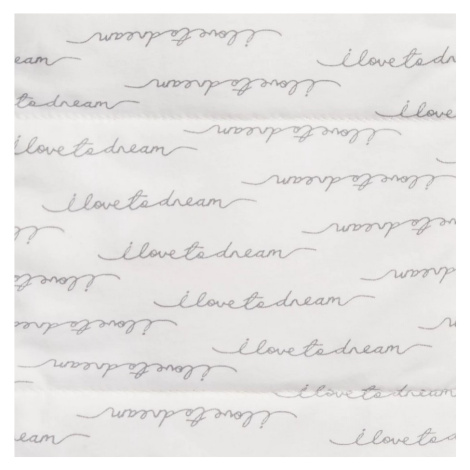 i love to dream
eam
i love to dr
i love to dream
to dream
i love
i love to dream
i love to dream
i love to dream
i love to dream
i love to dream
i
i love to dream
dream
i love to
i love to dream
i love to dre
i love to dream
i love to dream
i love to dream
i love to dream
eam
i love to